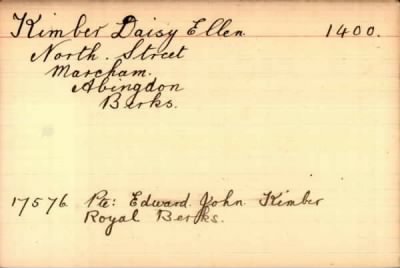 Kimber Daisy Ellen. 1400.
North. Street
Marcham.
Abingdon
Berks.
17576 Pte: Edward. John. Kimber
Royal Berks.